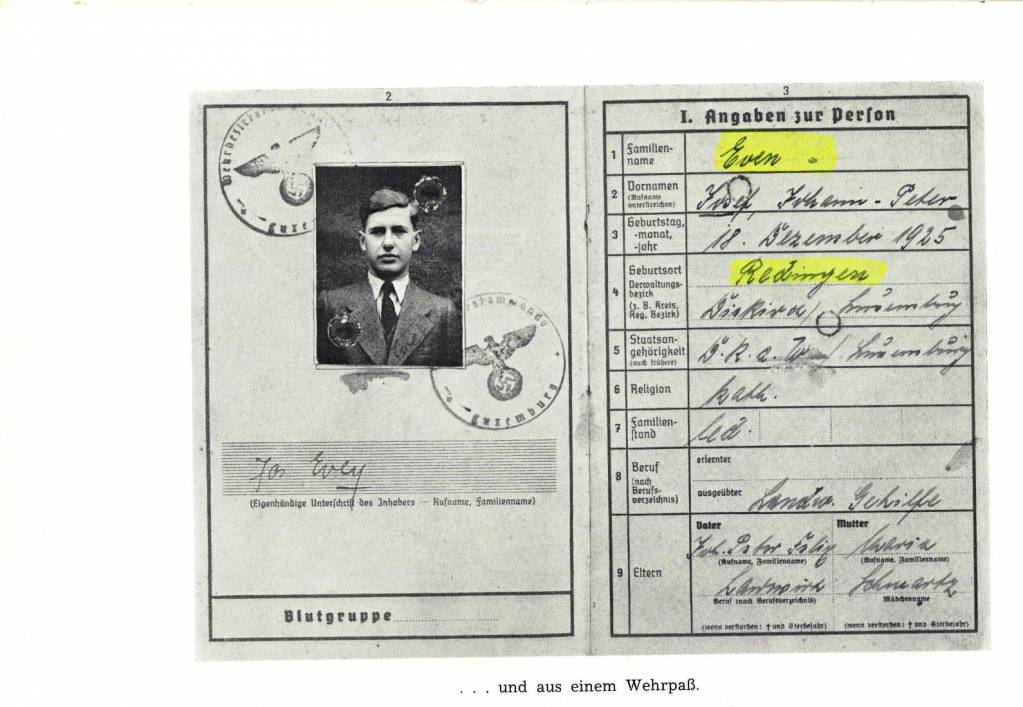 2
Wehrbezirk
Luxe
kommando
Luxemburg
Jos Even
(Eigenhändige Unterschrift des Inhabers — Rufname, Familienname)
Blutgruppe
3
I. Angaben zur Person
1 Familien-
name
Even
2 Vornamen
(Rufname
unterstreichen)
Josef, Johann - Peter
3 Geburtstag,
-monat,
-jahr
18. Dezember 1925
4 Geburtsort
Verwaltungs-
bezirk
(z. B. Kreis,
Reg. Bezirk)
Redingen
Diekirch / Luxemburg
5 Staatsan-
gehörigkeit
(auch frühere)
D. R. a. W / Luxemburg
6 Religion
kath.
7 Familien-
stand
led.
8 Beruf
(nach
Berufs-
verzeichnis)
erlernter
ausgeübter Landw. Gehilfe
9 Eltern
Vater Mutter
Joh. Peter Maria
(Rufname, Familienname) (Rufname, Familienname)
Landwirt Schmartz
Beruf (nach Berufsverzeichnis) Mädchenname
(wenn verstorben: † und Sterbejahr) (wenn verstorben: † und Sterbejahr)
. . . und aus einem Wehrpaß.